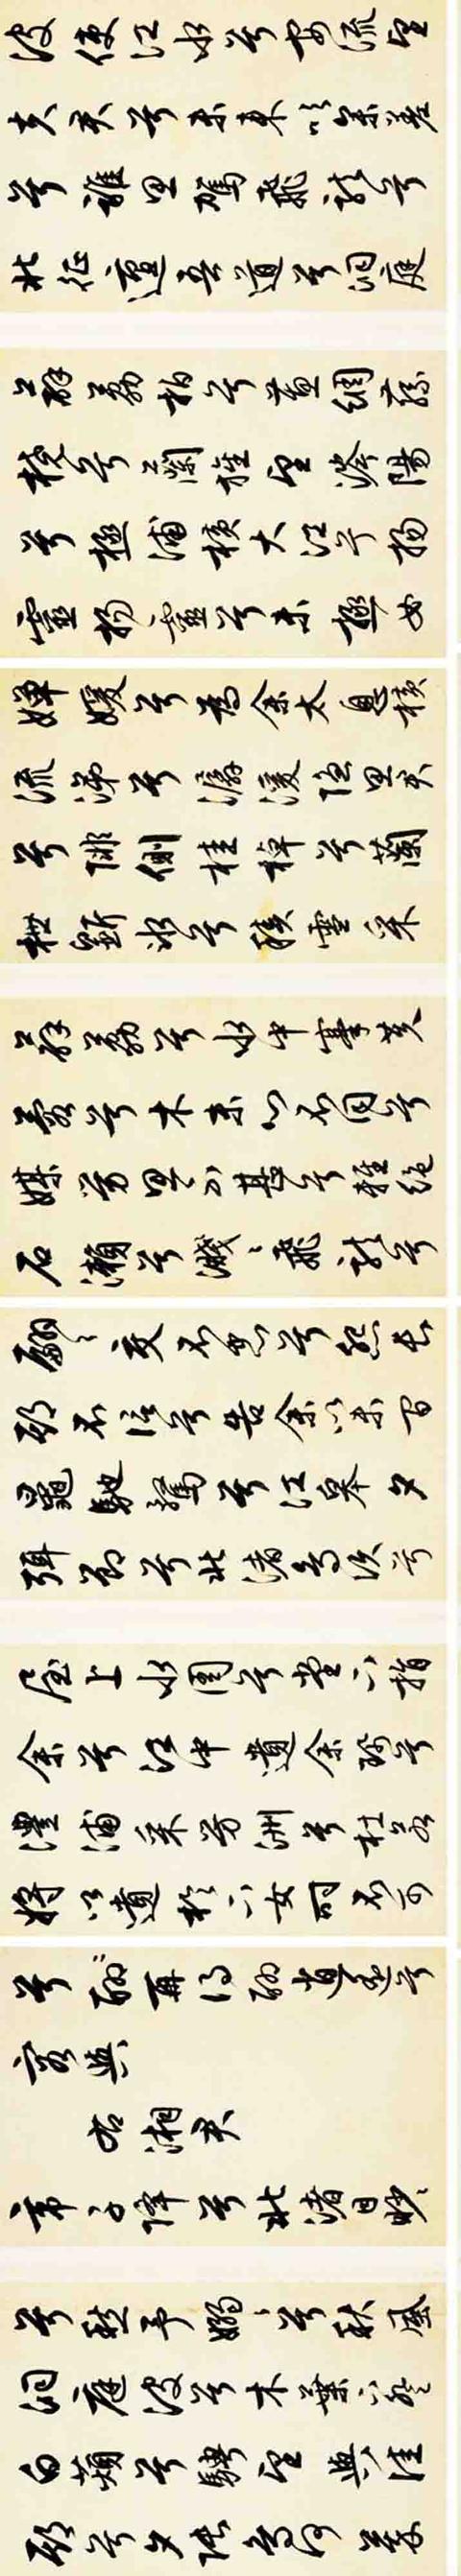 波使江水兮安流望
夫君兮未来吹參差
兮誰思駕飛龍兮
北征邅吾道兮洞庭
薜荔拍兮蕙綢蓀
橈兮蘭旌望涔陽
兮極浦橫大江兮揚
靈揚靈兮未極女
嬋媛兮為余太息橫
流涕兮潺湲隱思君
兮悱側桂棹兮蘭
枻斲冰兮積雪采
薜荔兮水中搴芙
蓉兮木末心不同兮
媒勞恩不甚兮輕絕
石瀨兮淺〻飛龍兮
翩〻交不忠兮怨長
期不信兮告余以未間
鼂馳騖兮江皋夕
弭節兮北渚鳥次兮
屋上水周兮堂下捐
余兮江中遺余珮兮
澧浦采芳洲兮杜若
將以遺於下女時不可
兮聊再得聊逍遙兮
容與
右湘君
帝子降兮北渚目眇〻
兮愁予嫋〻兮秋風
洞庭波兮木葉下登
白蘋兮騁望與佳
期兮夕張鳥何萃